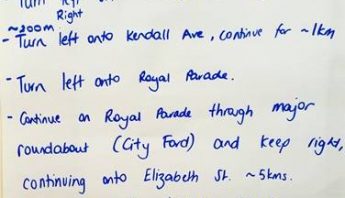 Right
~200m
- Turn left onto Kendall Ave, continue for ~1km
- Turn left onto Royal Parade.
- Continue on Royal Parade through major
roundabout (City Ford) and keep right,
continuing onto Elizabeth St. ~5kms.